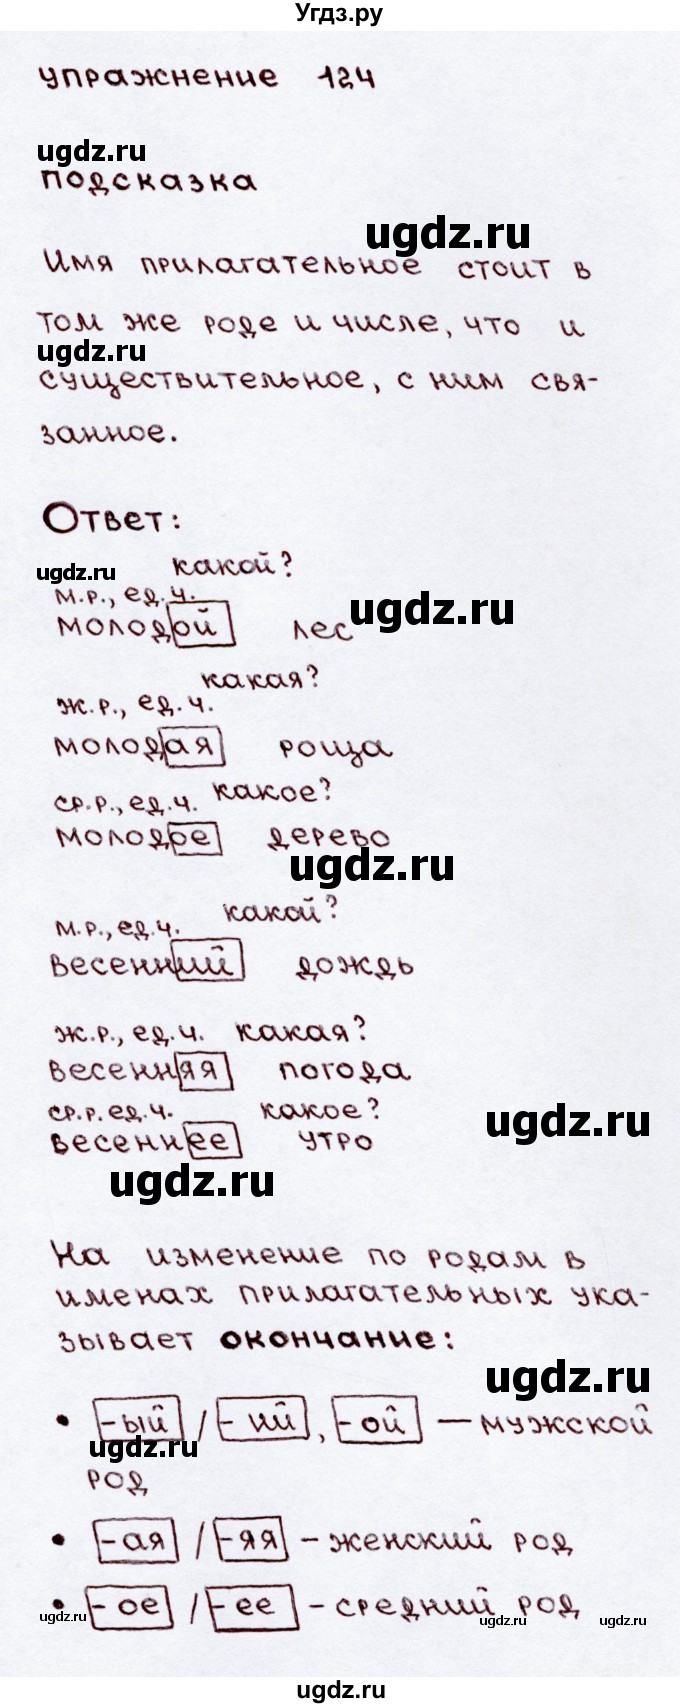 Угдз.ру
упражнение 124
ugdz.ru
подсказка
ugdz.ru
Имя прилагательное стоит в
том же роде и числе, что и
ugdz.ru
существительное, с ним свя-
занное.
Ответ:
какой?
ugdz.ru
м.р., ед.ч.
ugdz.ru
молодой лес
какая?
ж.р., ед.ч.
молодая роща
ср.р., ед.ч. какое?
молодое дерево
ugdz.ru
м.р., ед.ч. какой?
весенний дождь
ж.р., ед.ч. какая?
весенняя погода
ср.р. ед.ч. какое?
ugdz.ru
весеннее утро
ugdz.ru
На изменение по родам в
именах прилагательных ука-
зывает окончание:
ugdz.ru
• -ый / -ий, -ой — мужской
ugdz.ru
род
• -ая / -яя - женский род
• -ое / -ее - средний род
ugdz.ru ugdz.ru ugdz.ru
ugdz.ru